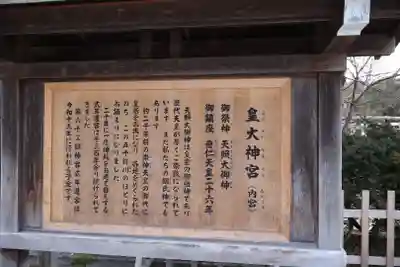 皇大神宮（内宮）
御祭神　天照大御神
御鎮座　垂仁天皇二十六年
天照大御神は皇室の御祖神であり
歴代天皇が厚くご崇敬になられて
います　また私たちの総氏神でも
あります
約二千年前の崇神天皇の御代に
皇居をお出になり　各地をめぐられた
のち　この五十鈴川のほとりに
お鎮まりになりました
二十年に一度神殿をお建て替えする
式年遷宮は千三百年余り続けられて
きました
第六十三回神宮式年遷宮は
令和十五年に行われる予定です